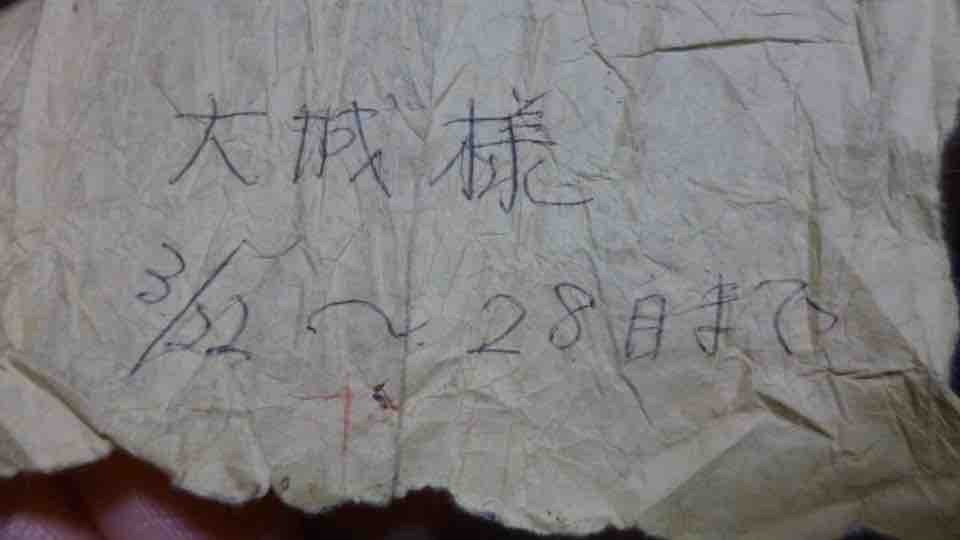 大城様
3/22 〜 28日まで